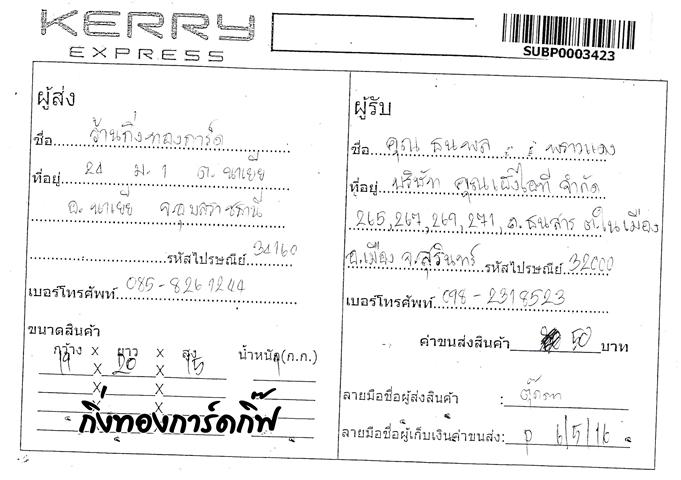 KERRY
EXPRESS
SUBP0003423
ผู้ส่ง
ชื่อ ร้านกิ่งทองการ์ด
ที่อยู่ 24 ม. 1 ต. นาเยีย
อ. นาเยีย จ.อุบลราชธานี
รหัสไปรษณีย์ 34160
เบอร์โทรศัพท์ 085-8261244
ขนาดสินค้า
กว้าง x ยาว x สูง น้ำหนัก(ก.ก.)
19 x 20 x 15
x x
x x
กิ่งทองการ์ดกิ๊ฟ
ผู้รับ
ชื่อ คุณ ธนพล
ที่อยู่ บริษัท คุณเผิ่งไอที จำกัด
265,267,269,271, ถ.ธนสาร ต.ในเมือง
อ.เมือง จ.สุรินทร์ รหัสไปรษณีย์ 32000
เบอร์โทรศัพท์ 098-2318523
ค่าขนส่งสินค้า 50 บาท
ลายมือชื่อผู้ส่งสินค้า :
ลายมือชื่อผู้เก็บเงินค่าขนส่ง: 6/5/16